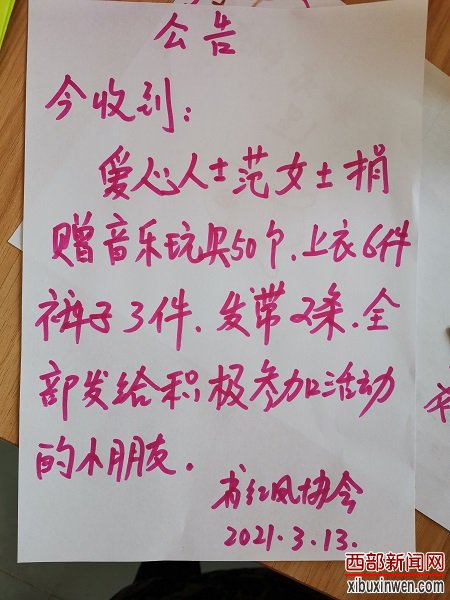 公告
今收到:
爱心人士范女士捐
赠音乐玩具50个、上衣6件
裤子3件、发带2条.全
部发给积极参加活动
的小朋友.
书红风协会
2021.3.13.
西部新闻网
xibuxinwen.com